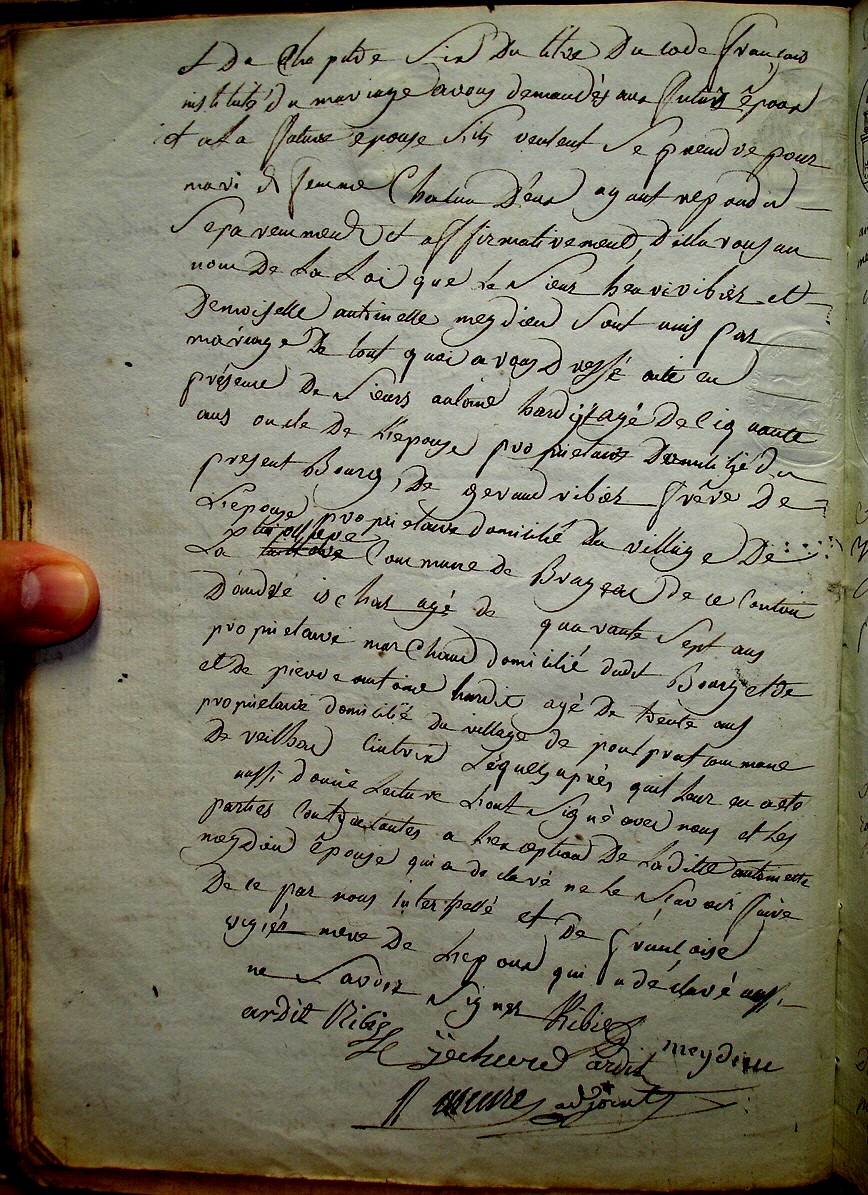 & Du Chapitre Six Du titre Du Code français
institulé du mariage avons demandés aux futur époux
et a La future épouse S'ils veulent Se prendre pour
mari & femme Chacun D'eux ayant repondu
Separemment et affirmativement, Déclarons au
nom De La Loi que Le Sieur henri ribier et
Demoiselle antoinette meydieu Sont unis par
mariage De tout quoi avons Dressé acte en
présence De Sieurs antoine hardit agé De Cinquante
ans oncle De L'epouse proprietaire Domicilié du
present Bourg, De geraud ribier frère De
L'epouse proprietaire domicilié du village De
La Commune de Brageac de ce Canton
D'andré ischar agé de quarante Sept ans
proprietaire marchand domicilié dudit Bourg et de
et De pierre antoine hardit agé De trente ans
proprietaire domicilié du village de pommune
De veilhac Lesquels après qu'il Leur en a eté
aussi donné Lecture L'ont Signé avec nous et Les
parties Contractantes a L'exception De Laditte antoinette
meydieu épouse qui a declaré ne Le Sçavoir faire
De ce par nous interpellé et De françoise
vigier mere De L'epoux qui a déclaré aussi
ne Savoir Signer Ribier
ardit Ribier meydieu
ardit
adjoint